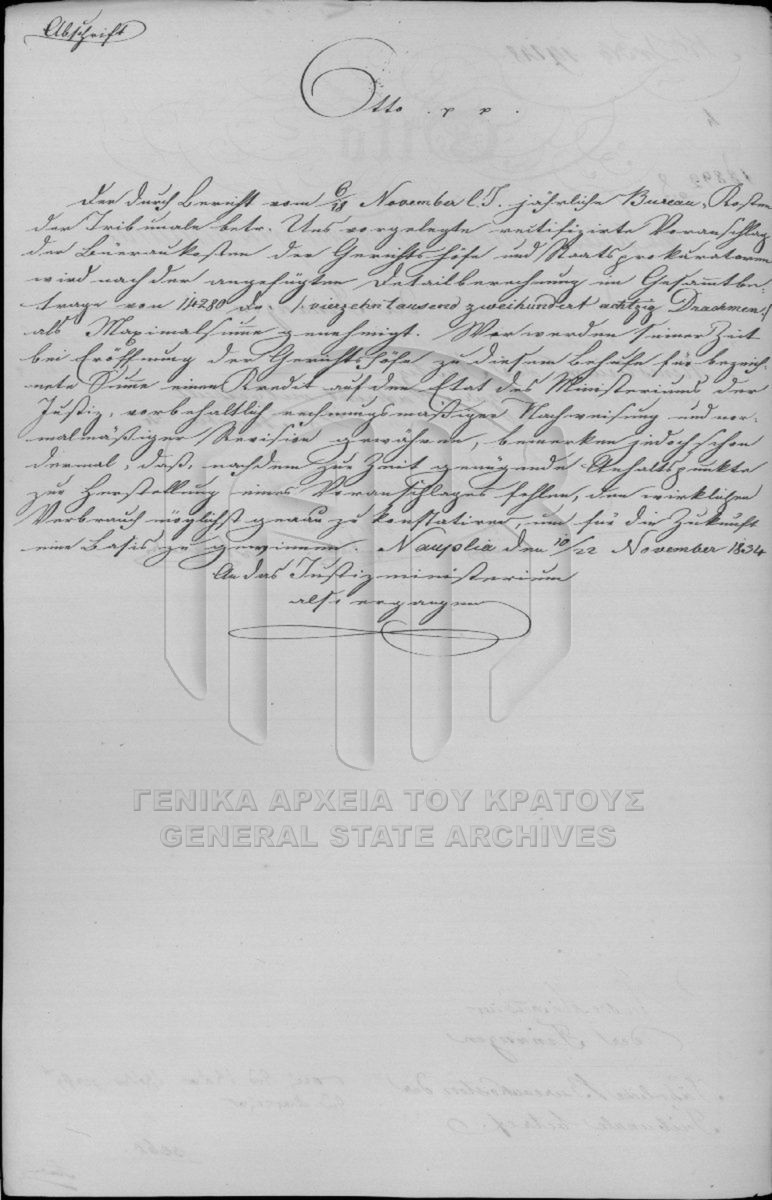 Abschrift
Otto . p p .
Der durch Bericht vom 6/18 November l. J. jährliche Bureau-Kosten
der Tribunale betr. Uns vorgelegte rectifizirte Voranschlag
der Büreaukosten der Gerichtshöfe und Staatsprokuratoren
wird nach der angefügten Detailberechnung im Gesammtbe-
trage von 14280 Dr. /: vierzehntausend zweihundert achtzig Drachmen :/
als Maximalsume genehmigt. Wir werden seiner Zeit
bei Eröffnung der Gerichtshöfe zu diesem Behufe für bezeich-
nete Sume einen Kredit auf den Etat des Ministeriums der
Justiz, vorbehaltlich rechnungsmäßiger Nachweisung und nor-
malmäßiger Revision gewähren, bemerken jedoch schon
dermal, daß, nachdem zur Zeit genügende Anhaltspunkte
zur Herstellung eines Voranschlages fehlen, den wirklichen
Verbrauch möglichst genau zu konstatiren, und für die Zukunft
eine Basis zu gewinnen. Nauplia den 10/22 November 1834
An das Justizministerium
also ergangen
ΓΕΝΙΚΑ ΑΡΧΕΙΑ ΤΟΥ ΚΡΑΤΟΥΣ
GENERAL STATE ARCHIVES